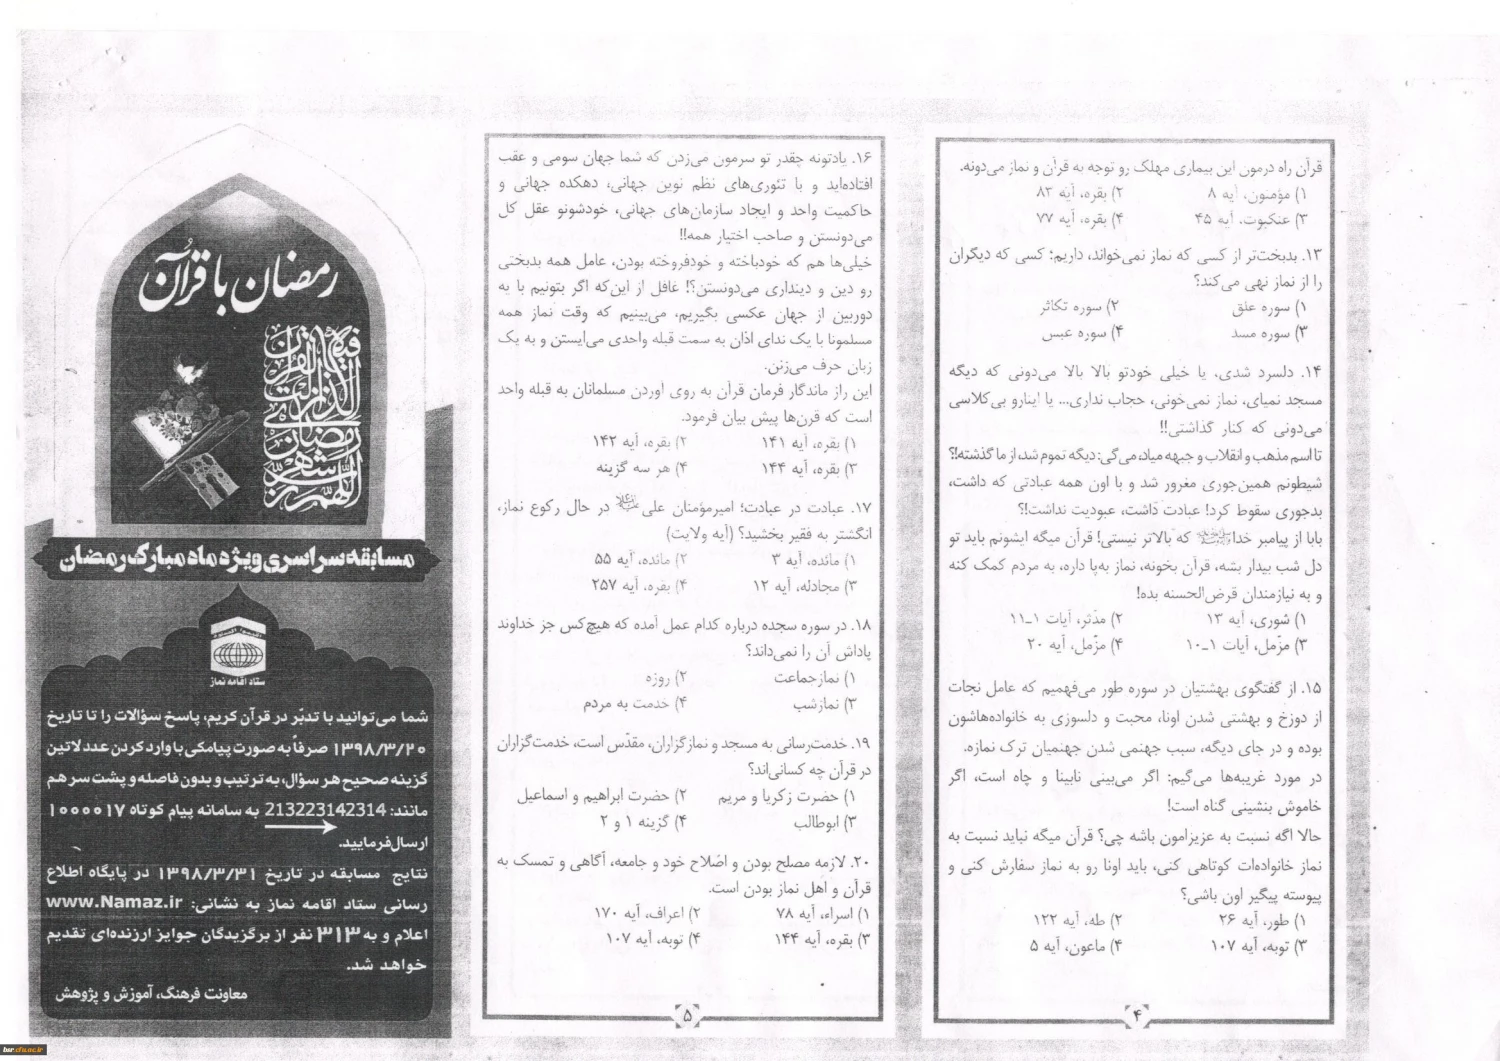 قرآن راه درمون این بیماری مهلک رو توجه به قرآن و نماز می‌دونه.
۱) مؤمنون، آیه ۸ ۲) بقره، آیه ۸۳
۳) عنکبوت، آیه ۴۵ ۴) بقره، آیه ۷۷
۱۳. بدبخت‌تر از کسی که نماز نمی‌خواند، داریم؛ کسی که دیگران
را از نماز نهی می‌کند؟
۱) سوره علق ۲) سوره تکاثر
۳) سوره مسد ۴) سوره عبس
۱۴. دلسرد شدی، یا خیلی خودتو بالا بالا می‌دونی که دیگه
مسجد نمیای، نماز نمی‌خونی، حجاب نداری... یا اینارو بی‌کلاسی
می‌دونی که کنار گذاشتی!!
تا اسم مذهب و انقلاب و جبهه میاد، می‌گی: دیگه تموم شد، از ما گذشته!؟
شیطونم همین‌جوری مغرور شد و با اون همه عبادتی که داشت،
بدجوری سقوط کرد! عبادت داشت، عبودیت نداشت!؟
بابا از پیامبر خدا که بالاتر نیستی! قرآن میگه ایشونم باید تو
دل شب بیدار بشه، قرآن بخونه، نماز به‌پا داره، به مردم کمک کنه
و به نیازمندان قرض‌الحسنه بده!
۱) شوری، آیه ۱۳ ۲) مدّثر، آیات ۱ـ۱۱
۳) مزّمل، آیات ۱ـ۱۰ ۴) مزّمل، آیه ۲۰
۱۵. از گفتگوی بهشتیان در سوره طور می‌فهمیم که عامل نجات
از دوزخ و بهشتی شدن اونا، محبت و دلسوزی به خانواده‌هاشون
بوده و در جای دیگه، سبب جهنمی شدن جهنمیان ترک نمازه.
در مورد غریبه‌ها می‌گیم: اگر می‌بینی نابینا و چاه است، اگر
خاموش بنشینی گناه است!
حالا اگه نسبت به عزیزامون باشه چی؟ قرآن میگه نباید نسبت به
نماز خانواده‌ات کوتاهی کنی، باید اونا رو به نماز سفارش کنی و
پیوسته پیگیر اون باشی؟
۱) طور، آیه ۲۶ ۲) طه، آیه ۱۲۲
۳) توبه، آیه ۱۰۷ ۴) ماعون، آیه ۵
۴
۱۶. یادتونه چقدر تو سرمون می‌زدن که شما جهان سومی و عقب
افتاده‌اید و با تئوری‌های نظم نوین جهانی، دهکده جهانی و
حاکمیت واحد و ایجاد سازمان‌های جهانی، خودشونو عقل کل
می‌دونستن و صاحب اختیار همه!!
خیلی‌ها هم که خودباخته و خودفروخته بودن، عامل همه بدبختی
رو دین و دینداری می‌دونستن؟! غافل از این‌که اگر بتونیم با یه
دوربین از جهان عکسی بگیریم، می‌بینیم که وقت نماز همه
مسلمونا با یک ندای اذان به سمت قبله واحدی می‌ایستن و به یک
زبان حرف می‌زنن.
این راز ماندگار فرمان قرآن به روی آوردن مسلمانان به قبله واحد
است که قرن‌ها پیش بیان فرمود.
۱) بقره، آیه ۱۴۱ ۲) بقره، آیه ۱۴۲
۳) بقره، آیه ۱۴۴ ۴) هر سه گزینه
۱۷. عبادت در عبادت؛ امیرمؤمنان علی در حال رکوع نماز،
انگشتر به فقیر بخشید؟ (آیه ولایت)
۱) مائده، آیه ۳ ۲) مائده، آیه ۵۵
۳) مجادله، آیه ۱۲ ۴) بقره، آیه ۲۵۷
۱۸. در سوره سجده درباره کدام عمل آمده که هیچ‌کس جز خداوند
پاداش آن را نمی‌داند؟
۱) نمازجماعت ۲) روزه
۳) نمازشب ۴) خدمت به مردم
۱۹. خدمت‌رسانی به مسجد و نمازگزاران، مقدّس است، خدمت‌گزاران
در قرآن چه کسانی‌اند؟
۱) حضرت زکریا و مریم ۲) حضرت ابراهیم و اسماعیل
۳) ابوطالب ۴) گزینه ۱ و ۲
۲۰. لازمه مصلح بودن و اصلاح خود و جامعه، آگاهی و تمسک به
قرآن و اهل نماز بودن است.
۱) اسراء، آیه ۷۸ ۲) اعراف، آیه ۱۷۰
۳) بقره، آیه ۱۴۴ ۴) توبه، آیه ۱۰۷
۵
رمضان با قرآن
اللهم رب شهر رمضان الذی انزلت فیه القرآن
مسابقه سراسری ویژه ماه مبارک رمضان
ستاد اقامه نماز
شما می‌توانید با تدبّر در قرآن کریم، پاسخ سؤالات را تا تاریخ
۱۳۹۸/۳/۲۰ صرفاً به صورت پیامکی با وارد کردن عدد لاتین
گزینه صحیح هر سؤال، به ترتیب و بدون فاصله و پشت سر هم
مانند: 213223142314 به سامانه پیام کوتاه ۱۰۰۰۰۱۷
ارسال فرمایید.
نتایج مسابقه در تاریخ ۱۳۹۸/۳/۳۱ در پایگاه اطلاع
رسانی ستاد اقامه نماز به نشانی: www.Namaz.ir
اعلام و به ۳۱۳ نفر از برگزیدگان جوایز ارزنده‌ای تقدیم
خواهد شد.
معاونت فرهنگ، آموزش و پژوهش
bsr.cfu.ac.ir